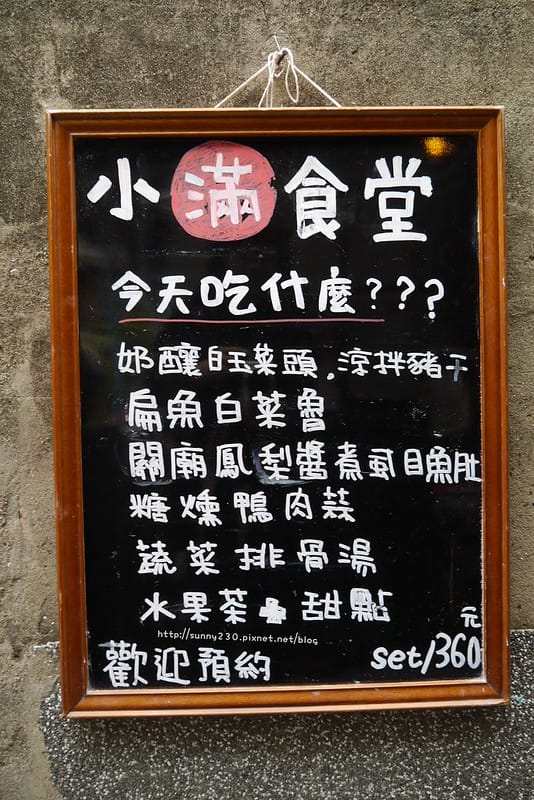 小滿食堂
今天吃什麼???
奶釀白玉菜頭.涼拌豬干
扁魚白菜魯
關廟鳳梨醬煮虱目魚肚
糖燻鴨肉蒜
蔬菜排骨湯
水果茶+甜點
http://sunny230.pixnet.net/blog
歡迎預約
set/360元